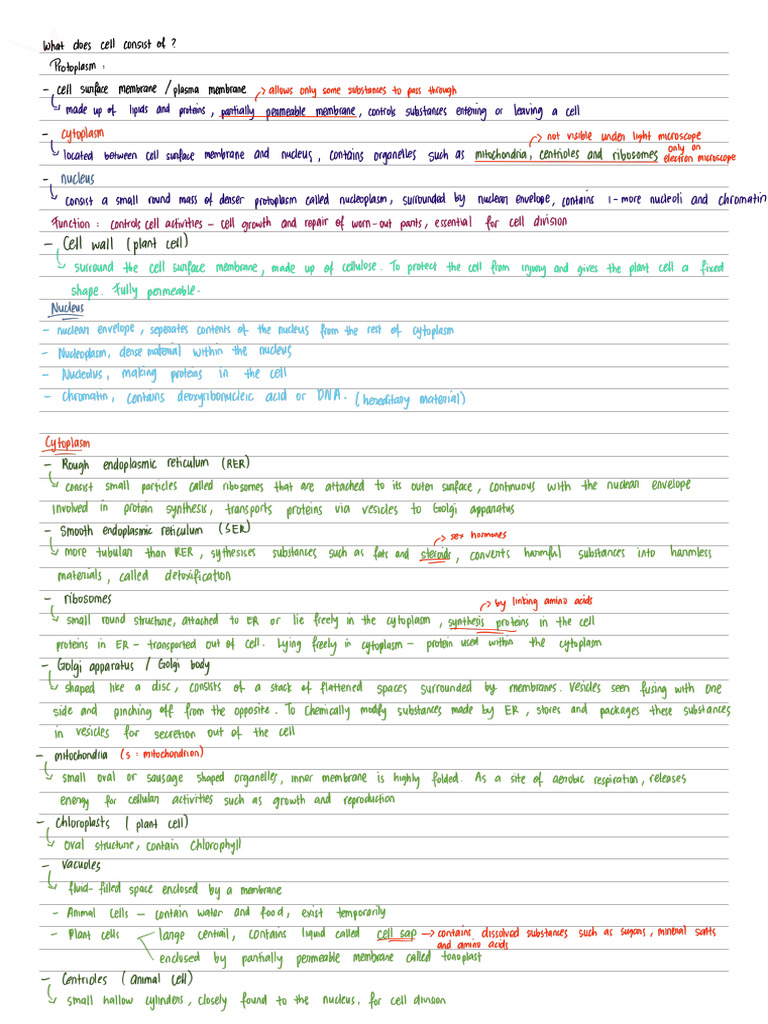 What does cell consist of ?
Protoplasm :
- cell surface membrane / plasma membrane → allows only some substances to pass through
↳ made up of lipids and proteins , partially permeable membrane , controls substances entering or leaving a cell
- cytoplasm → not visible under light microscope
↳ located between cell surface membrane and nucleus , contains organelles such as mitochondria, centrioles and ribosomes only on electron microscope
- nucleus
↳ consist a small round mass of denser protoplasm called nucleoplasm , surrounded by nuclear envelope, contains 1-more nucleoli and chromatin
Function : controls cell activities – cell growth and repair of worn-out parts, essential for cell division
- Cell wall (plant cell)
↳ surround the cell surface membrane, made up of cellulose. To protect the cell from injury and gives the plant cell a fixed
shape. Fully permeable.
Nucleus
- nuclear envelope , seperates contents of the nucleus from the rest of cytoplasm
- Nucleoplasm, dense material within the nucleus
- Nucleolus, making proteins in the cell
- Chromatin, contains deoxyribonucleic acid or DNA. (hereditary material)
Cytoplasm
- Rough endoplasmic reticulum (RER)
↳ consist small particles called ribosomes that are attached to its outer surface, continuous with the nuclear envelope
Involved in protein synthesis, transports proteins via vesicles to Golgi apparatus
- Smooth endoplasmic reticulum (SER) → sex hormones
↳ more tubular than RER , sythesices substances such as fats and steroids, converts harmful substances into harmless
materials, called detoxification
- ribosomes → by linking amino acids
↳ small round structure, attached to ER or lie freely in the cytoplasm , synthesis proteins in the cell
proteins in ER – transported out of cell. Lying freely in cytoplasm – protein used within the cytoplasm
- Golgi apparatus / Golgi body
↳ shaped like a disc, consists of a stack of flattened spaces surrounded by membranes. Vesicles seen fusing with one
side and pinching off from the opposite. To Chemically modify substances made by ER, stores and packages these substances
in vesicles for secretion out of the cell
- mitochondria (s : mitochondrion)
↳ small oval or sausage shaped organelles, inner membrane is highly folded. As a site of aerobic respiration, releases
energy for cellular activities such as growth and reproduction
- Chloroplasts ( plant cell)
↳ Oval structure, contain Chlorophyll
- Vacuoles
↳ fluid-filled space enclosed by a membrane
- Animal Cells – contain water and food, exist temporarily
- Plant cells < large centail, contains liquid called cell sap → contains dissolved substances such as sugars, mineral salts
and amino acids
enclosed by partially permeable membrane called tonoplast
- Centrioles ( animal cell)
↳ small hallow cylinders, closely found to the nucleus, for cell division